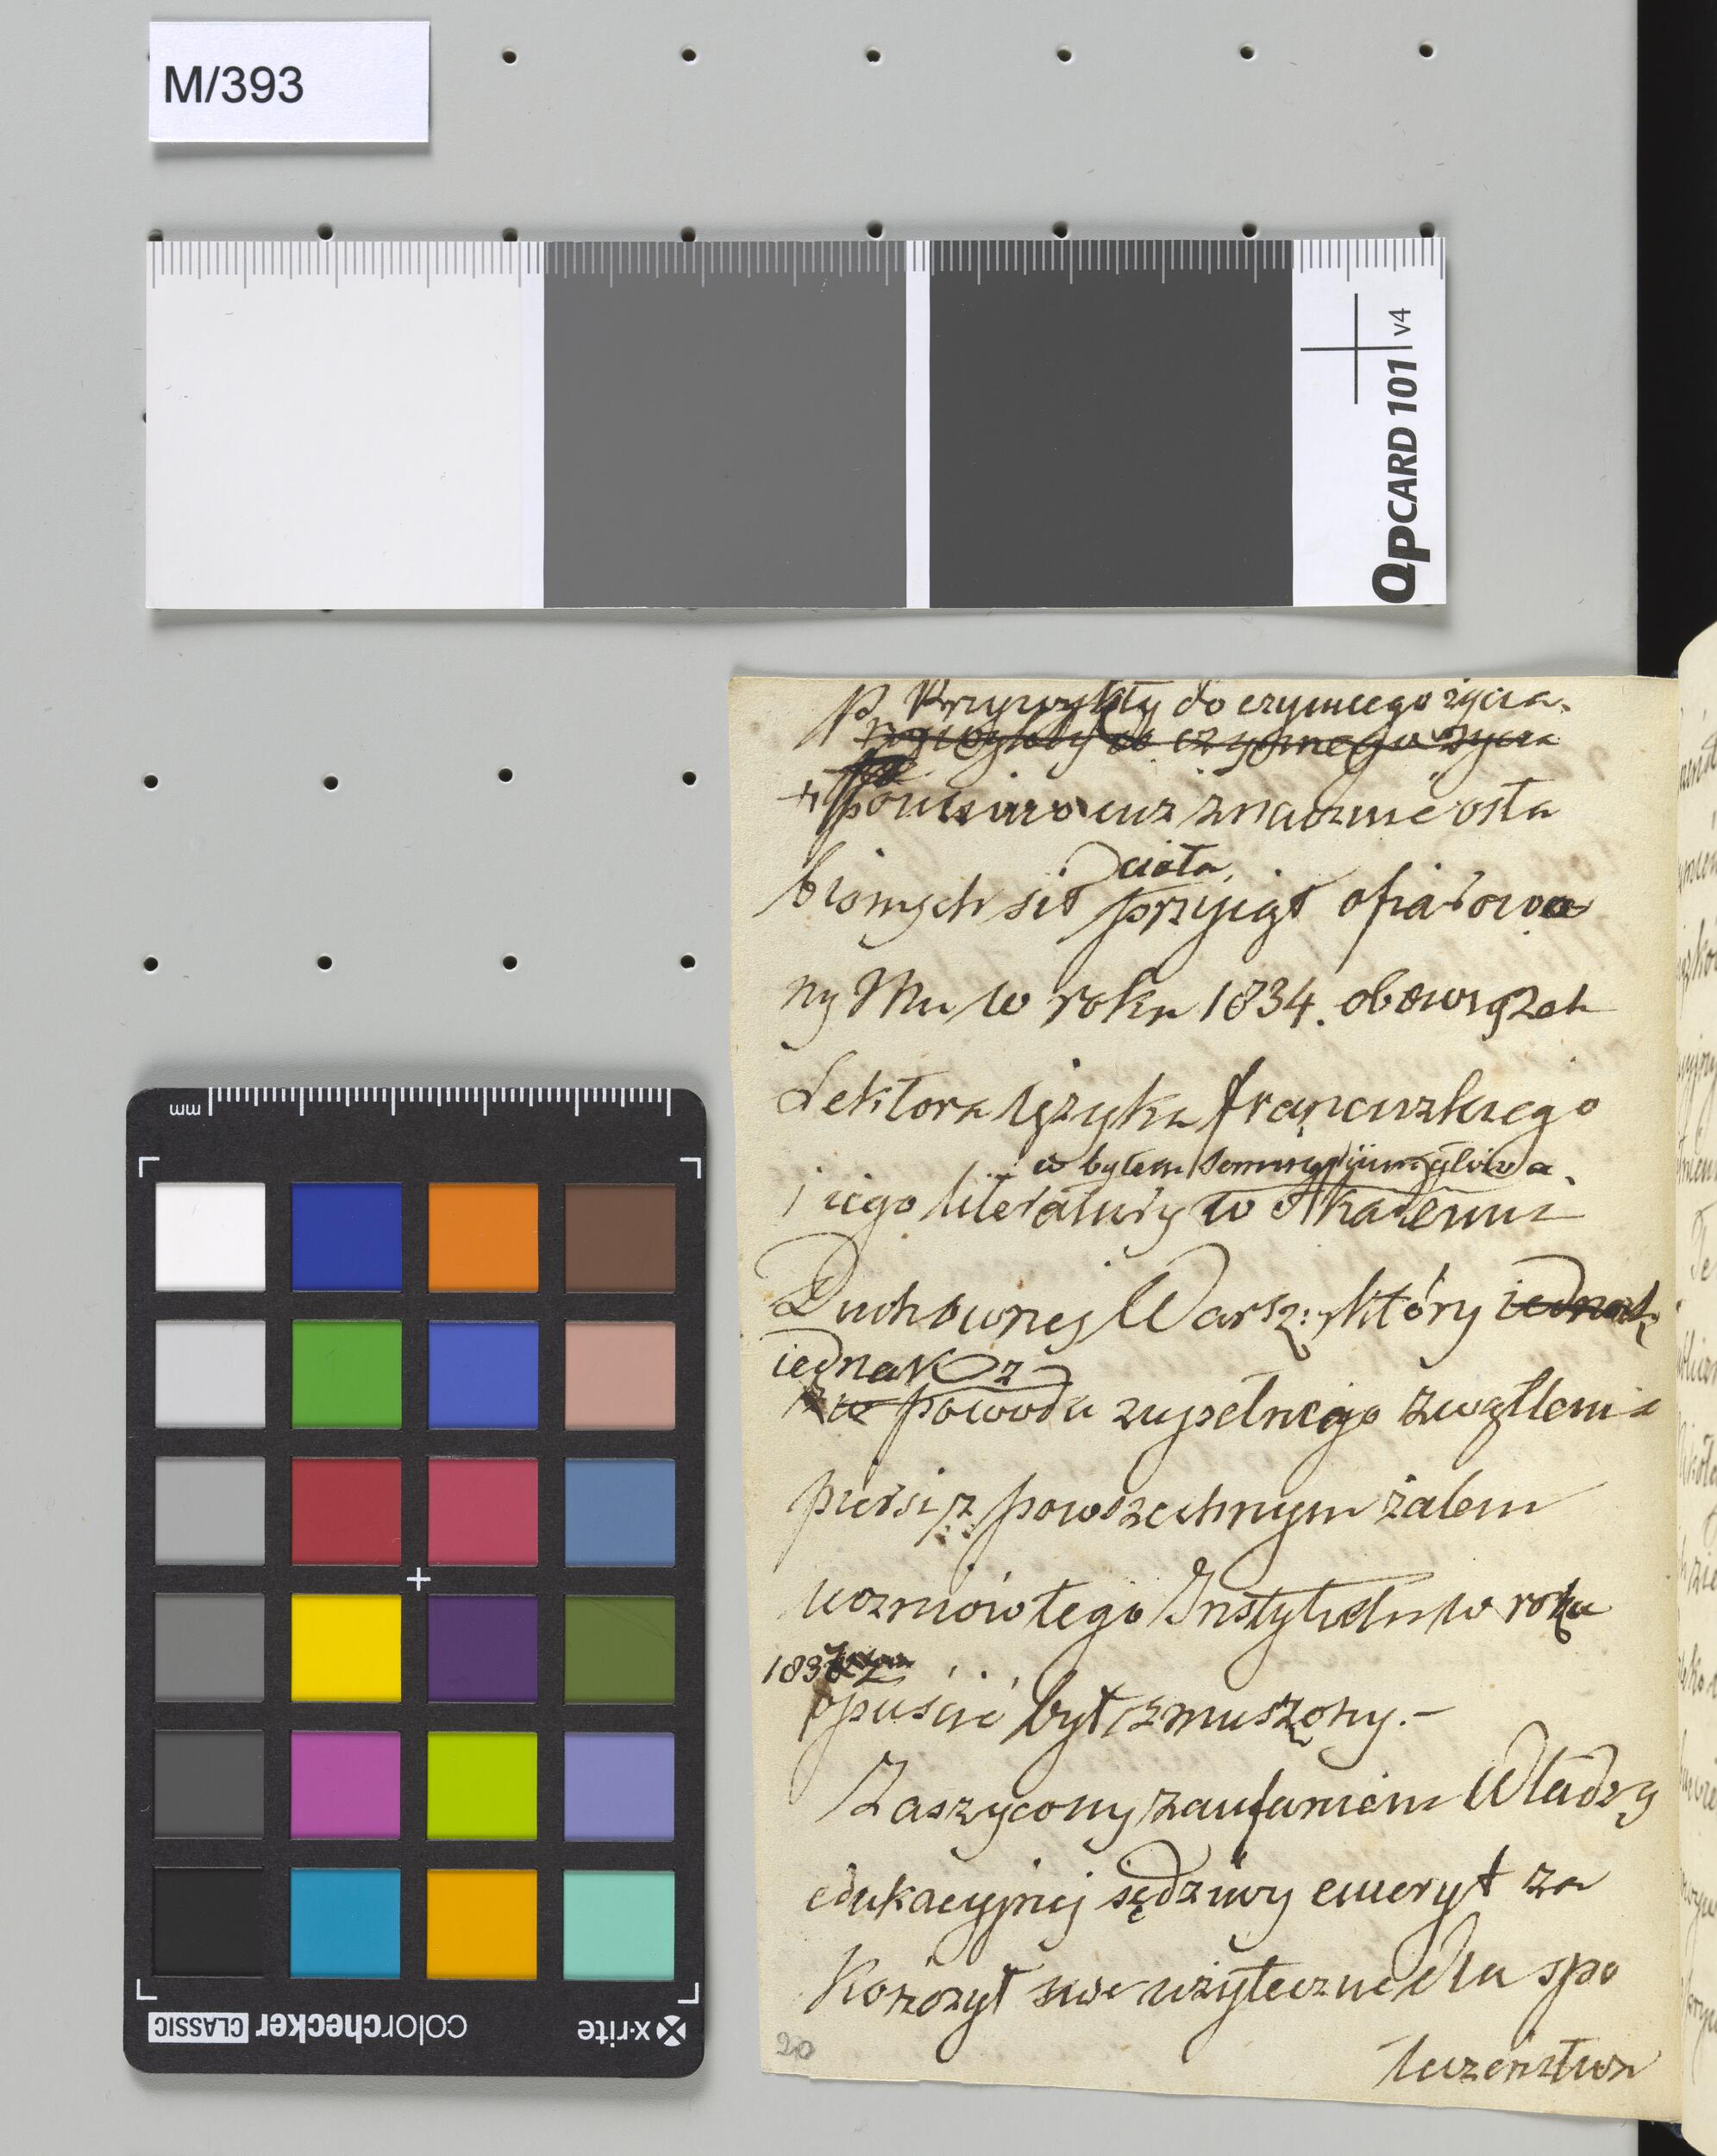 M/393
QPCARD 101 v4
P. Przywykły do czynnego życia.
Przywykły do czynnego życia
+ pomimo iuz znacznie osła
ciała,
bionych sił przyiął ofiarowa
ny Mu w roku 1834. obowiązek
Lektora ięzyka francuzkiego
w byłem
i iego literatury w Akademii
Duchownej Warsz: który iednak
iednak z
powodu zupełnego zwątlenia
piersi, z powszechnym żalem
uczniów tego Instytutu w roku
opuścić był zmuszony.-
Zaszycony zaufaniem Władzy
edukacyjnej sędziwy emeryt za
kończył swe użyteczne dla spo
łeczeństwa
20
mm
x-rite
colorchecker CLASSIC